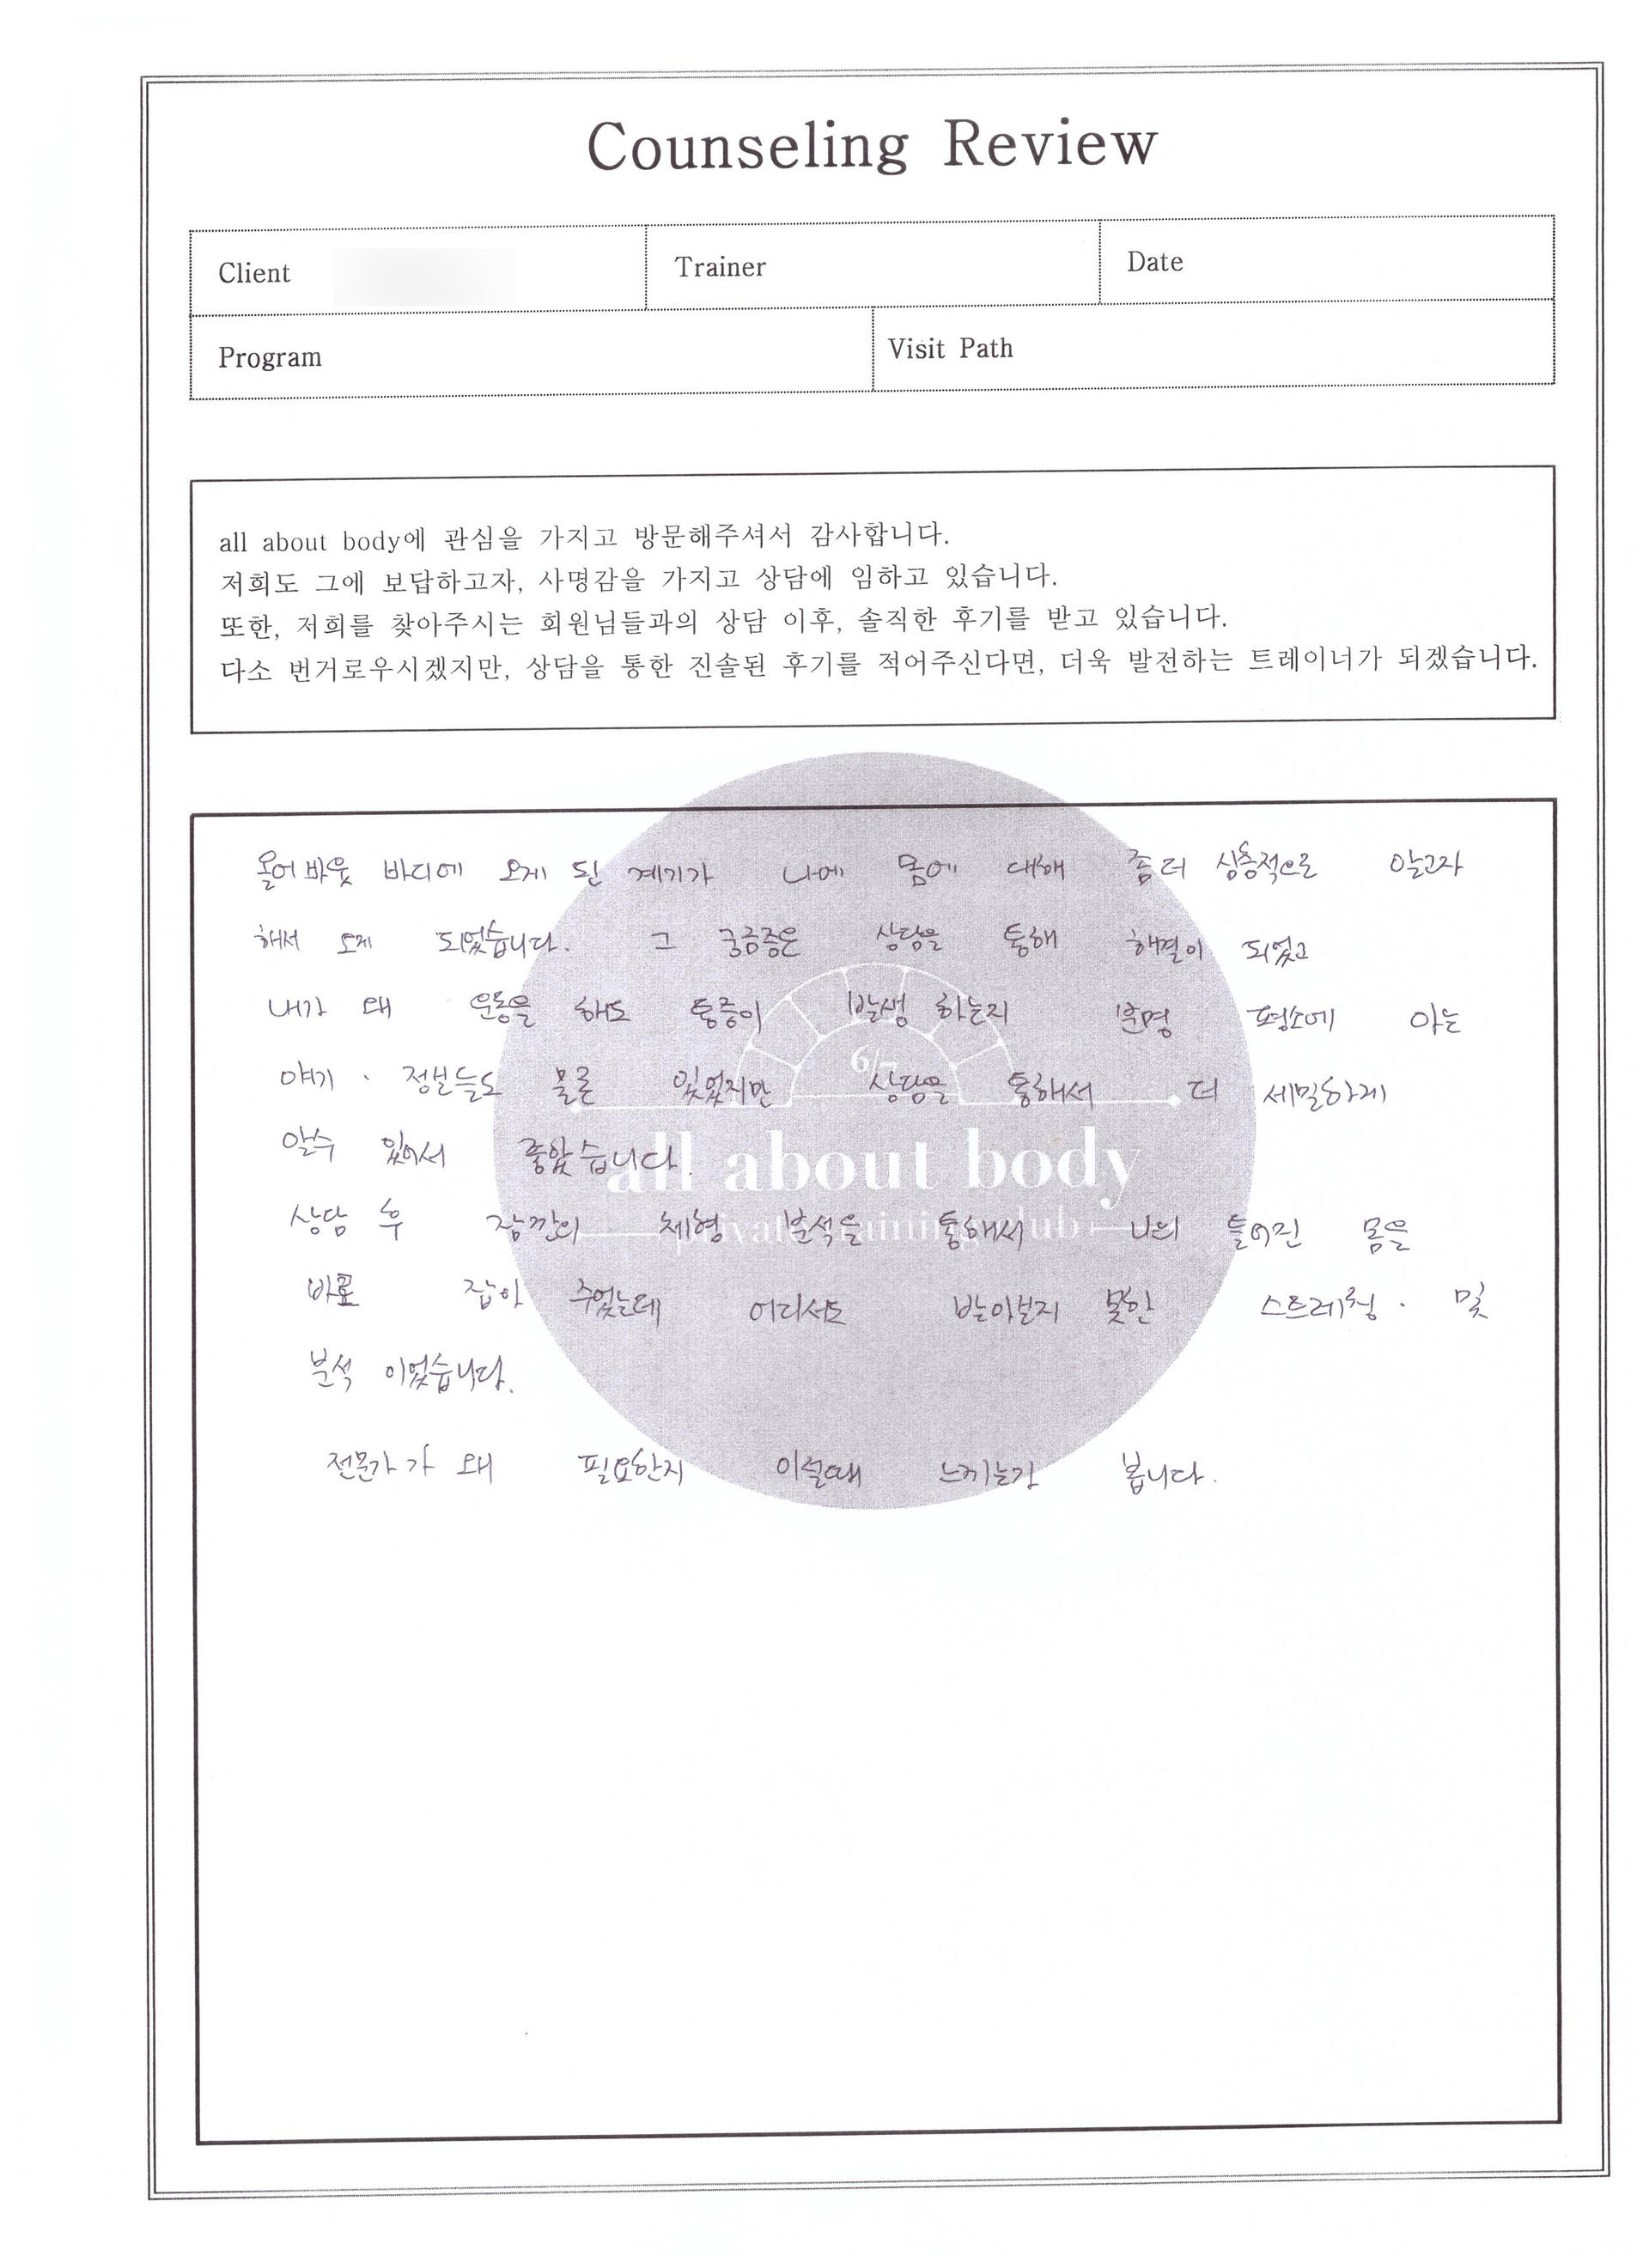 Counseling Review
Client
Trainer
Date
Program
Visit Path
all about body에 관심을 가지고 방문해주셔서 감사합니다.
저희도 그에 보답하고자, 사명감을 가지고 상담에 임하고 있습니다.
또한, 저희를 찾아주시는 회원님들과의 상담 이후, 솔직한 후기를 받고 있습니다.
다소 번거로우시겠지만, 상담을 통한 진솔된 후기를 적어주신다면, 더욱 발전하는 트레이너가 되겠습니다.
올어바웃 바디에 오게 된 계기가 나에 몸에 대해 좀더 심층적으로 알고자
해서 오게 되었습니다. 그 궁금증은 상담을 통해 해결이 되었고
내가 왜 운동을 해도 통증이 발생 하는지 분명 평소에 아는
얘기 · 정보들도 물론 있었지만 상담을 통해서 더 세밀하게
알수 있어서 좋았습니다.
상담 후 잠깐의 체형 분석을 통해서 나의 틀어진 몸을
바로 잡아 주었는데 어디서도 받아보지 못한 스트레칭 · 및
분석 이었습니다.
전문가가 왜 필요한지 이럴때 느끼는가 봅니다.
all about body
private training club